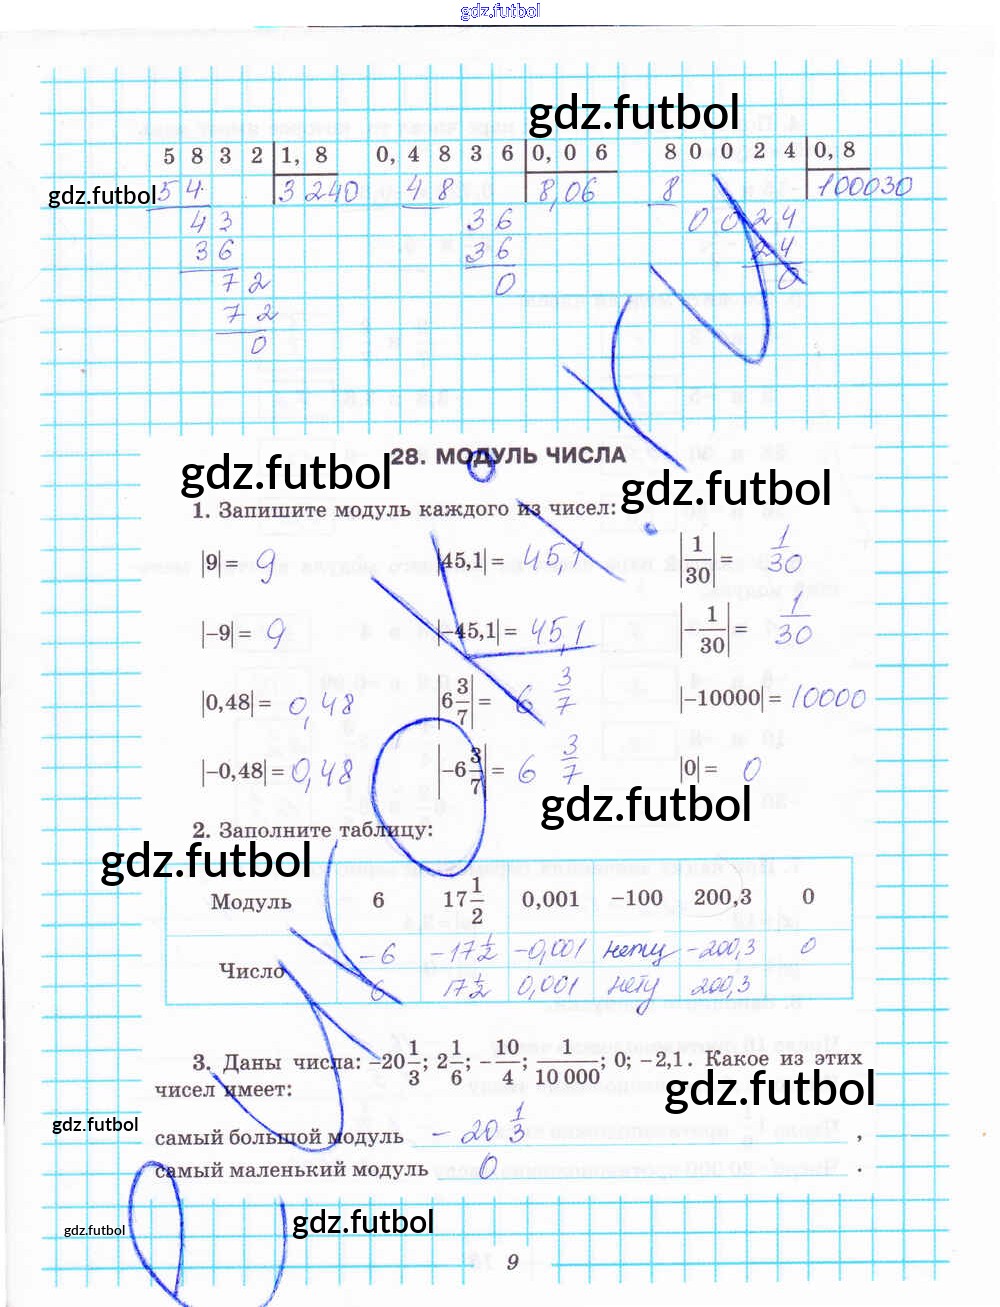 gdz.futbol
gdz.futbol
5832 1,8 0,4836 0,06 80024 0,8
gdz.futbol
54 3240 48 8,06 8 100030
43 36 0024
36 36 24
72 0 0
72
0
28. МОДУЛЬ ЧИСЛА
gdz.futbol
gdz.futbol
1. Запишите модуль каждого из чисел:
|9| = 9 |45,1| = 45,1 |1/30| = 1/30
|−9| = 9 |−45,1| = 45,1 |−1/30| = 1/30
|0,48| = 0,48 |6 3/7| = 6 3/7 |−10000| = 10000
|−0,48| = 0,48 |−6 3/7| = 6 3/7 |0| = 0
gdz.futbol
2. Заполните таблицу:
gdz.futbol
Модуль 6 17 1/2 0,001 −100 200,3 0
Число −6 −17 1/2 −0,001 нету −200,3 0
6 17 1/2 0,001 нету 200,3
3. Даны числа: −20 1/3; 2 1/6; −10/4; 1/10 000; 0; −2,1. Какое из этих
чисел имеет:
gdz.futbol
gdz.futbol
самый большой модуль −20 1/3 ,
самый маленький модуль 0 .
gdz.futbol
gdz.futbol
9